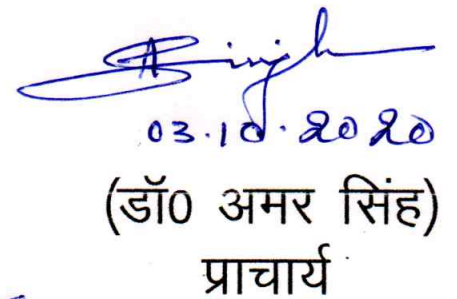 A Singh
03.10.2020
(डॉ0 अमर सिंह)
प्राचार्य